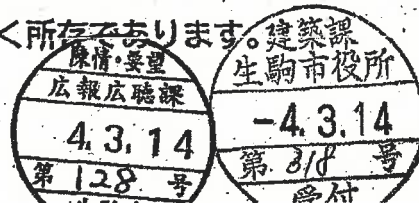 く所存であります。
陳情・要望
広報広聴課
4.3.14
第128号
建築課
生駒市役所
-4.3.14
第318号
受付